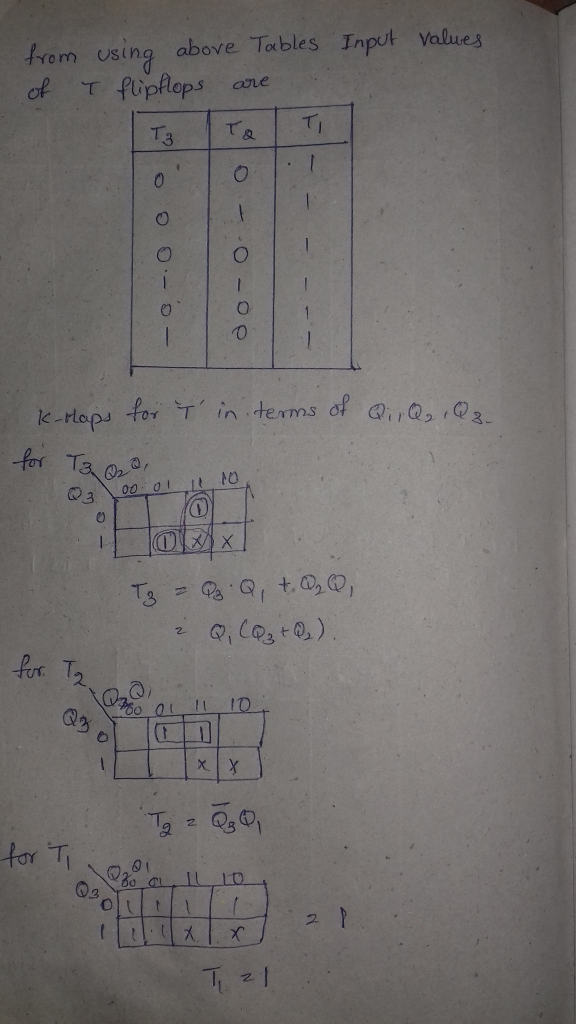 from using above Tables Input values
of T flipflops are
T3 T2 T1
0 0 1
0 1 1
0 0 1
1 1 1
0 0 1
1 0 1
K-Maps for 'T' in terms of Q1, Q2, Q3.
for T3
Q2Q1
Q3 00 01 11 10
0 1
1 1 X X
T3 = Q3·Q1 + Q2Q1
= Q1(Q3+Q2).
for T2
Q2Q1
Q3 00 01 11 10
0 1 1
1 X X
T2 = Q̅3Q1
for T1
Q2Q1
Q3 00 01 11 10
0 1 1 1 1
1 1 1 X X = 1
T1 = 1